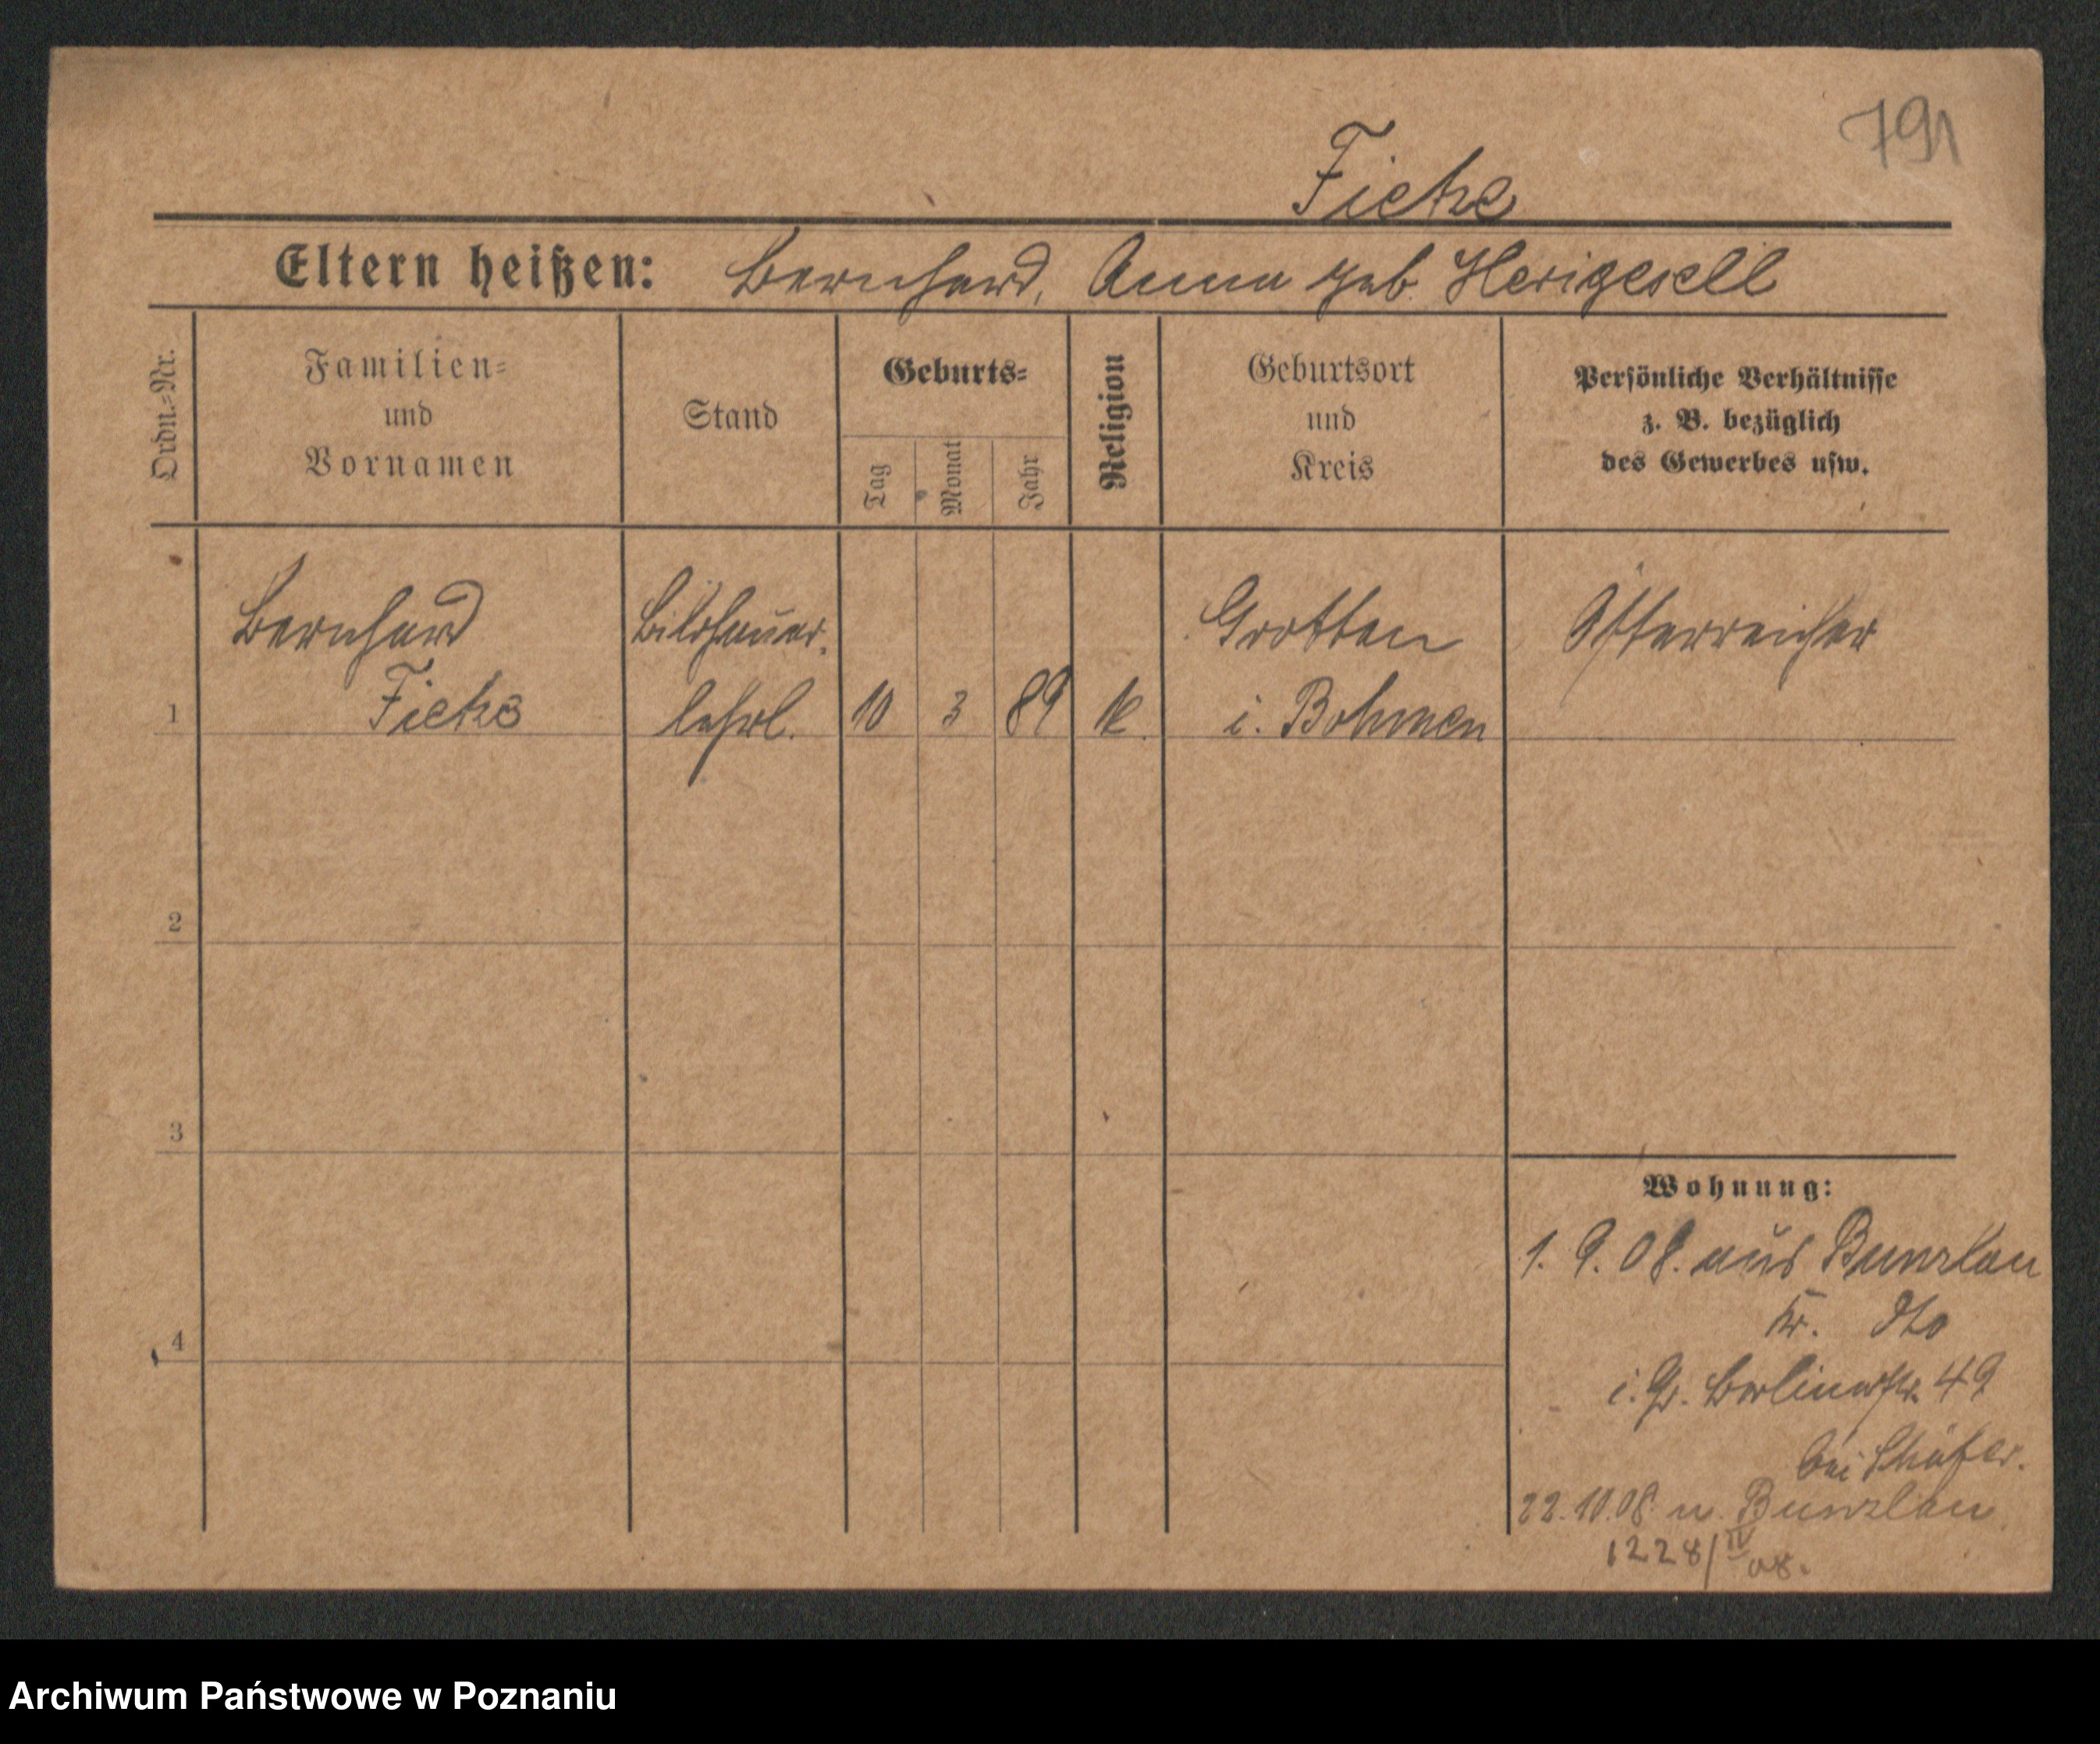 791
Fietze
Eltern heißen: Bernhard, Anna geb. Herigesell
Ordn.-Nr.
Familien-
und
Vornamen
Stand
Geburts-
Tag
Monat
Jahr
Religion
Geburtsort
und
Kreis
Persönliche Verhältnisse
z. B. bezüglich
des Gewerbes usw.
1
Bernhard
Fietze
Bildhauer.
lehrl.
10
3
89
k.
Grotten
i. Bohmen
Österreicher
2
3
4
Wohnung:
1. 9. 08. aus Bunzlau
Kr. dto
i. Gr. Berlinerstr. 49
bei Schäfer.
22.10.08. n. Bunzlau
1228/IV 08.
Archiwum Państwowe w Poznaniu